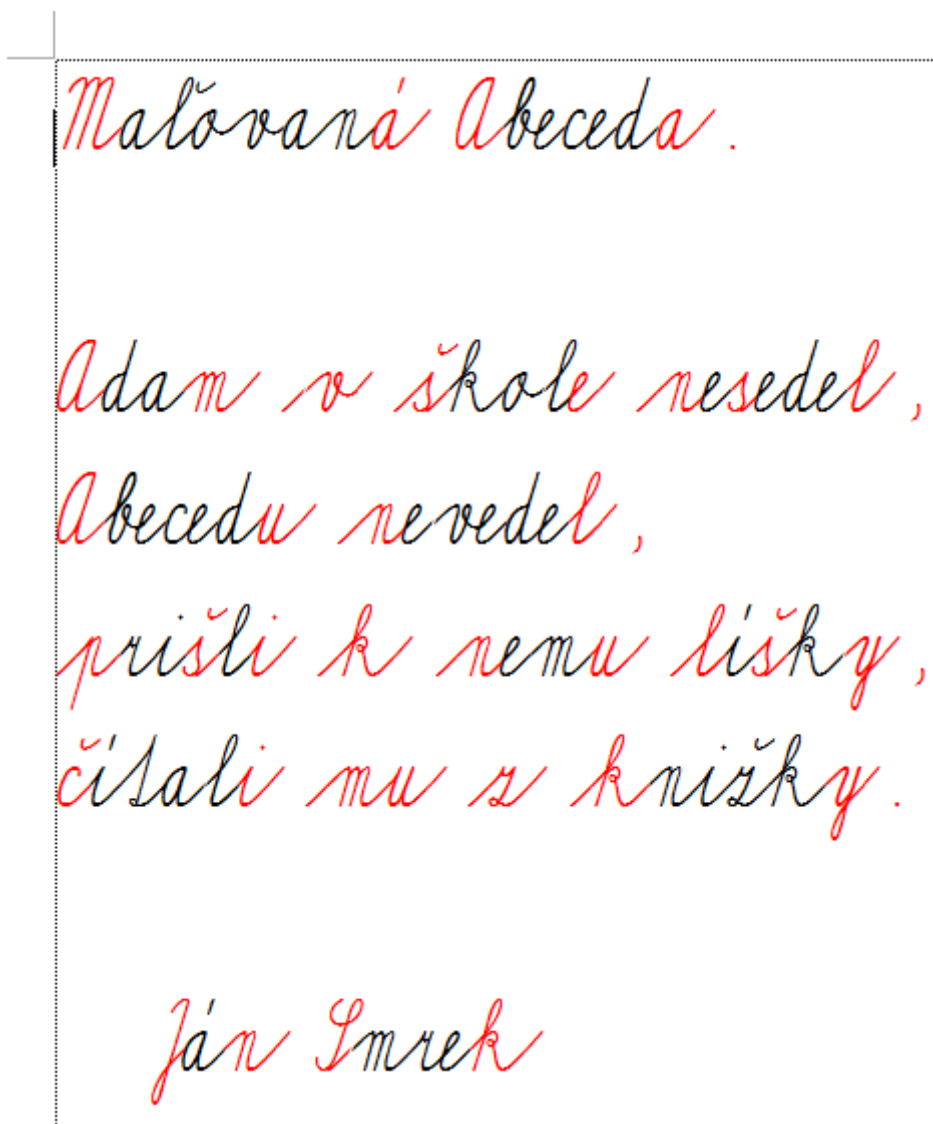 Maľovaná Abeceda .
Adam v škole nesedel ,
Abecedu nevedel ,
prišli k nemu líšky ,
čítali mu z knižky .
Ján Smrek